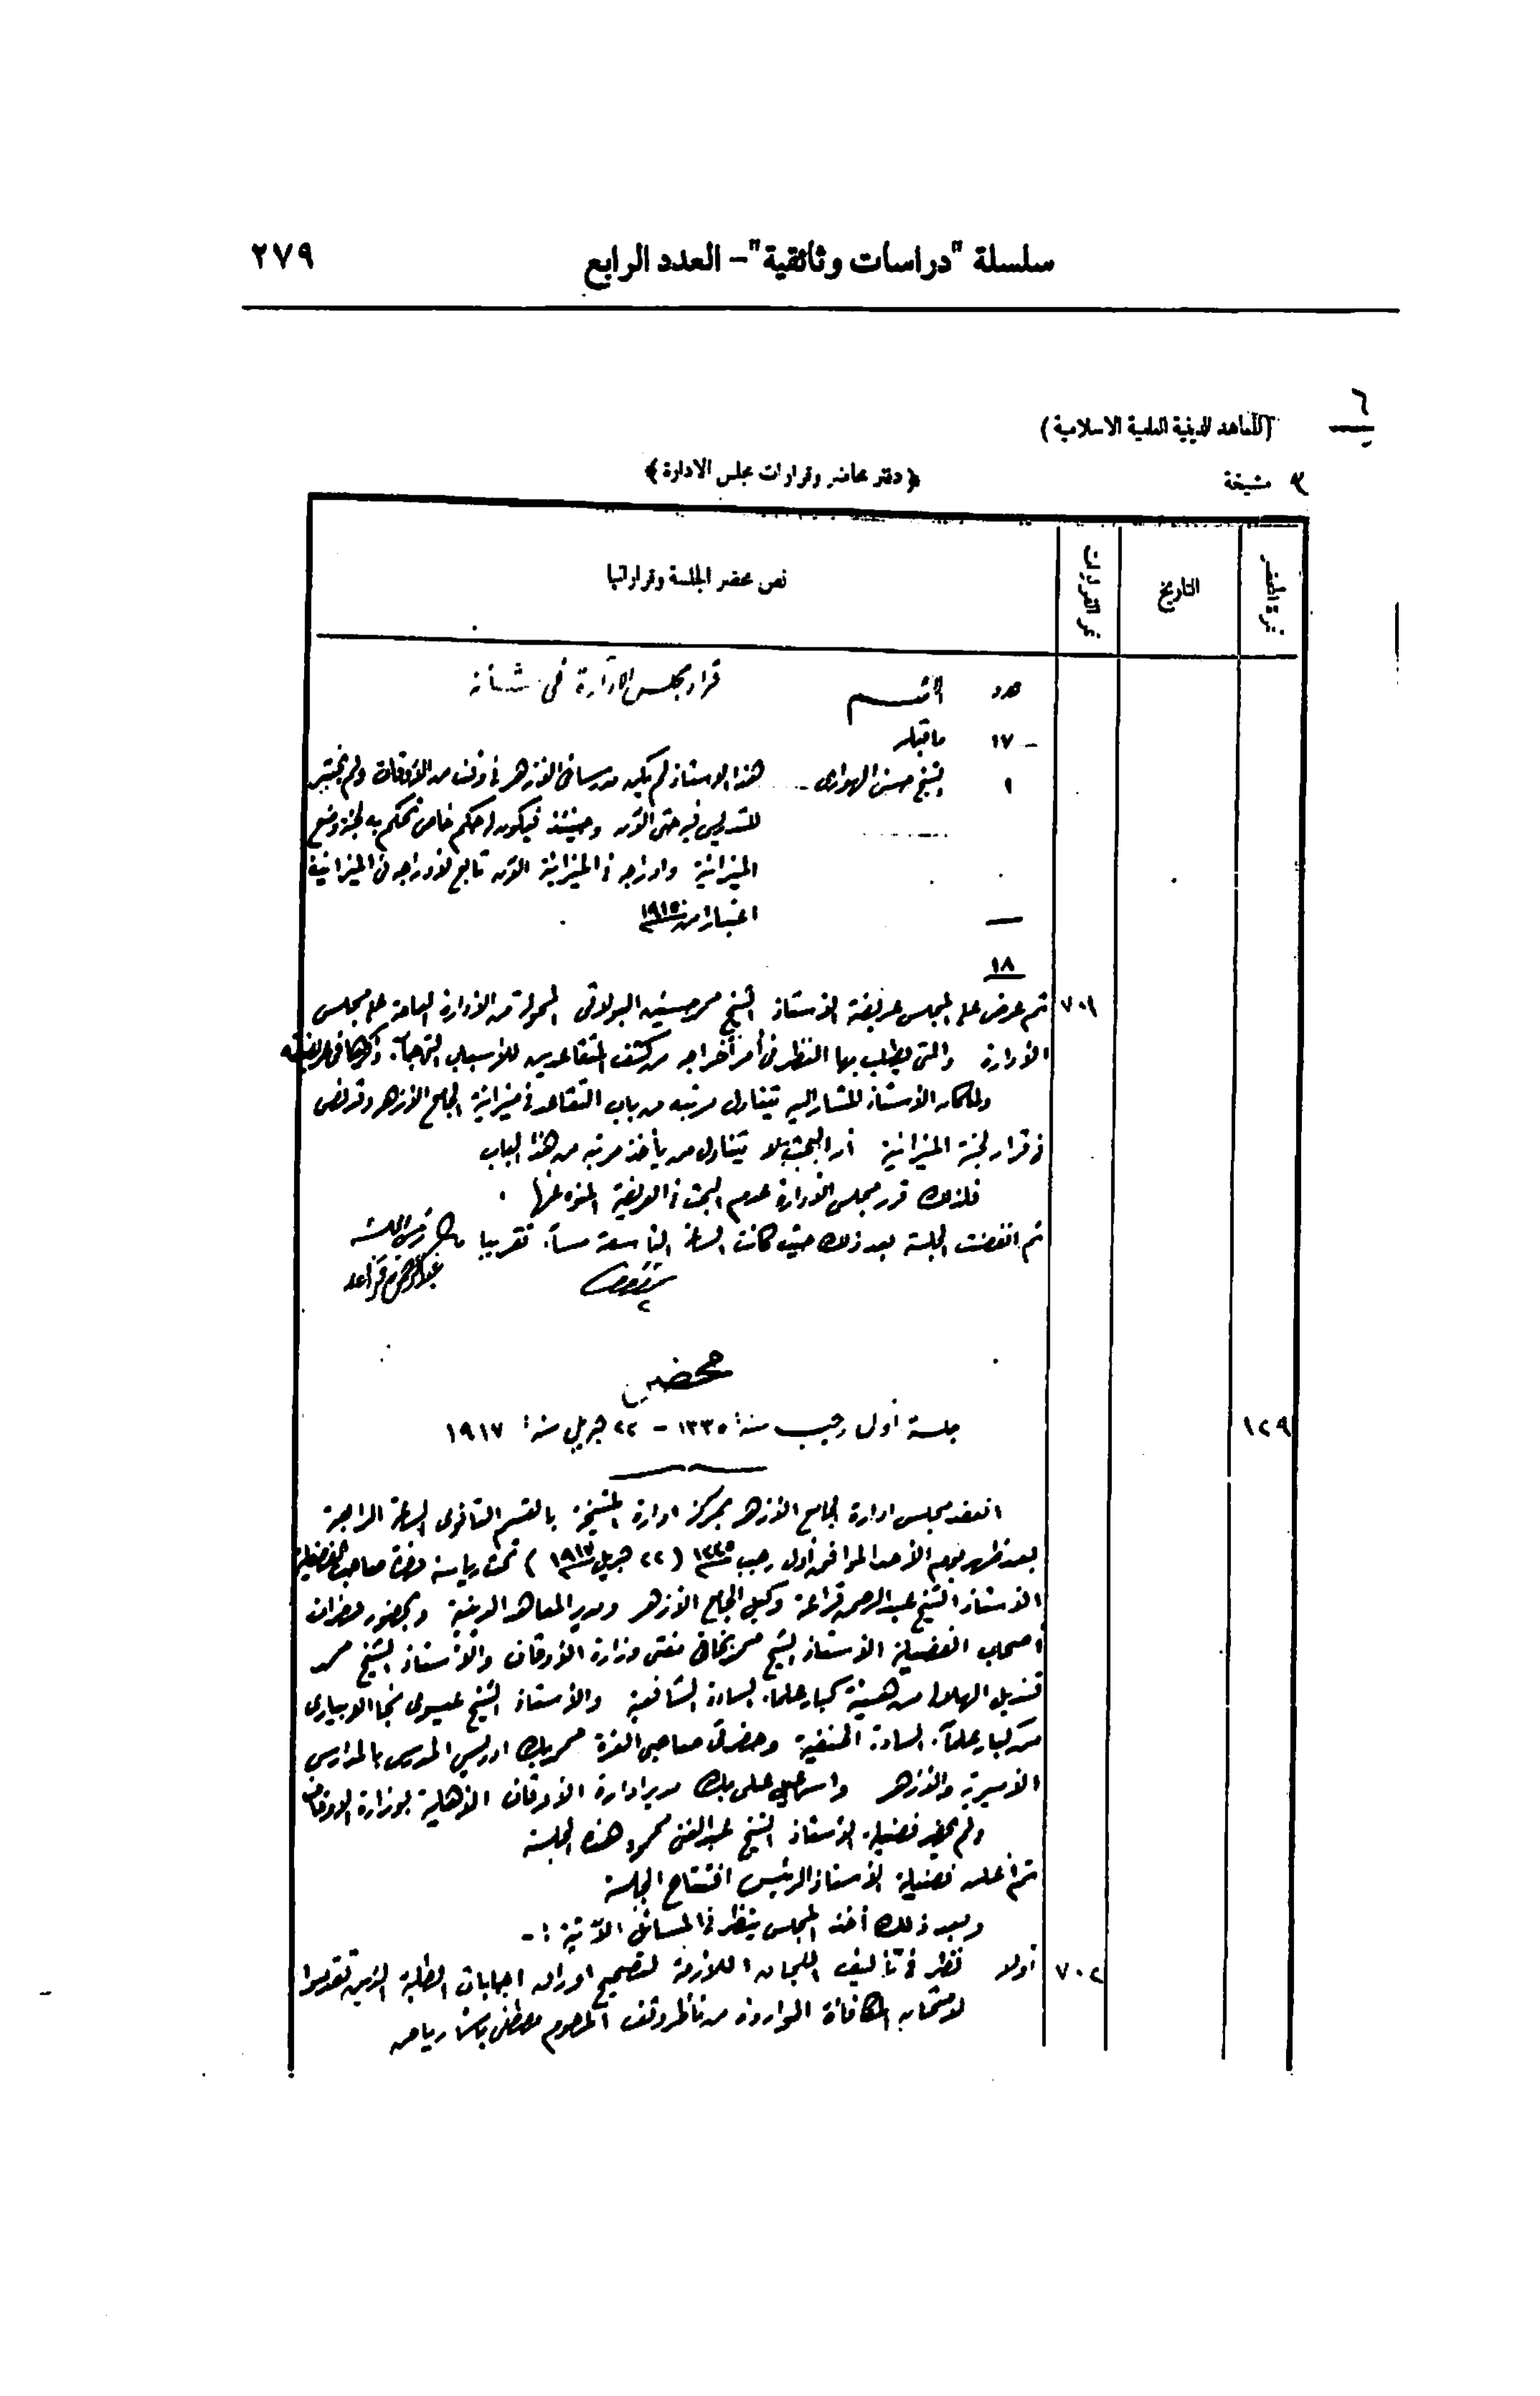 سلسلة "دراسات وثائقية" – العدد الرابع ٢٧٩
٦
(المعاهد الدينية العلمية الاسلامية)
٣ مشيخة
﴿دفتر محاضر وقرارات مجلس الادارة﴾
نمرة المحضر التاريخ نمر القرارات نص محضر الجلسة وقراراتها
عدد الاسم قرار مجلس الادارة في شأنه
١٧ – ما قبله
١ الشيخ حسن الهوارى هذا الاستاذ لم يكن مدرسا في الازهر في وقت من الأوقات ولم يختبر
للتدريس فيه حتى الآن وحينئذ فيكون له حكم خاص تحكم به لجنة وضع
الميزانية وادراجه في الميزانية الآن تابع لادراجه في الميزانية
اعتبارا من سنة ١٩١٥
١٨
٧٠١ ثم عرض على المجلس عريضة الأستاذ الشيخ محمد حسنين البولاقى المحولة من الادارة العامة على مجلس
الأدارة والتى يطلب بها النظر في أمر أخراجه من كشف المتقاعدين للأسباب التى جاء ذكرها في عريضته
ولما كان الأستاذ المشار اليه يتناول مرتبه من باب التقاعد في ميزانية الجامع الأزهر وقد نص
في قرار لجنة الميزانية أن البحث لا يتناول من يأخذ مرتبه من هذا الباب
فلذلك قرر مجلس الادارة عدم البحث في العريضة المنوه عنها .
ثم انفضت الجلسة بعد ذلك حيث كانت الساعة التاسعة مساءً تقريبا رئيس الجلسة
عبد الرحمن قراعه
محضر
١٢٩ جلسة أول رجب سنة ١٣٣٥ – ٢٢ ابريل سنة ١٩١٧
انعقد مجلس ادارة الجامع الأزهر بمركز ادارة المشيخة بالقسم الثانوى الساعة الرابعة
بعد ظهر يوم الأحد الموافق أول رجب سنة ١٣٣٥ (٢٢ ابريل سنة ١٩١٧) تحت رياسة حضرة صاحب الفضيلة
الأستاذ الشيخ عبد الرحمن قراعة وكيل الجامع الأزهر ومدير المعاهد الدينية وبحضور حضرات
أصحاب الفضيلة الأستاذ الشيخ محمد بخاتى مفتى وزارة الأوقاف والأستاذ الشيخ محمد
قنديل الهلالى من هيئة كبار علماء السادة الشافعية والأستاذ الشيخ عيسوى نجا الابيارى
من كبار علماء السادة الحنفية وحضرتى صاحبى العزة محمد بك ادريس المدرس بالمدارس
الأميرية والأزهر واسماعيل على بك مدير ادارة الأوقاف الأهلية بوزارة الاوقاف
ولم يحضر فضيلة الأستاذ الشيخ عبد الغنى محمود هذه الجلسة
ثم أعلن فضيلة الأستاذ الرئيس افتتاح الجلسة
وبعد ذلك أخذ المجلس ينظر في المسائل الآتية :-
٧٠٢ أولا نظر في تأليف اللجان اللازمة لتصحيح اوراق اجابات الطلبة الذين تقدموا
لامتحان المكافأة الواردة من ناظر وقف المرحوم مصطفى باشا رياض